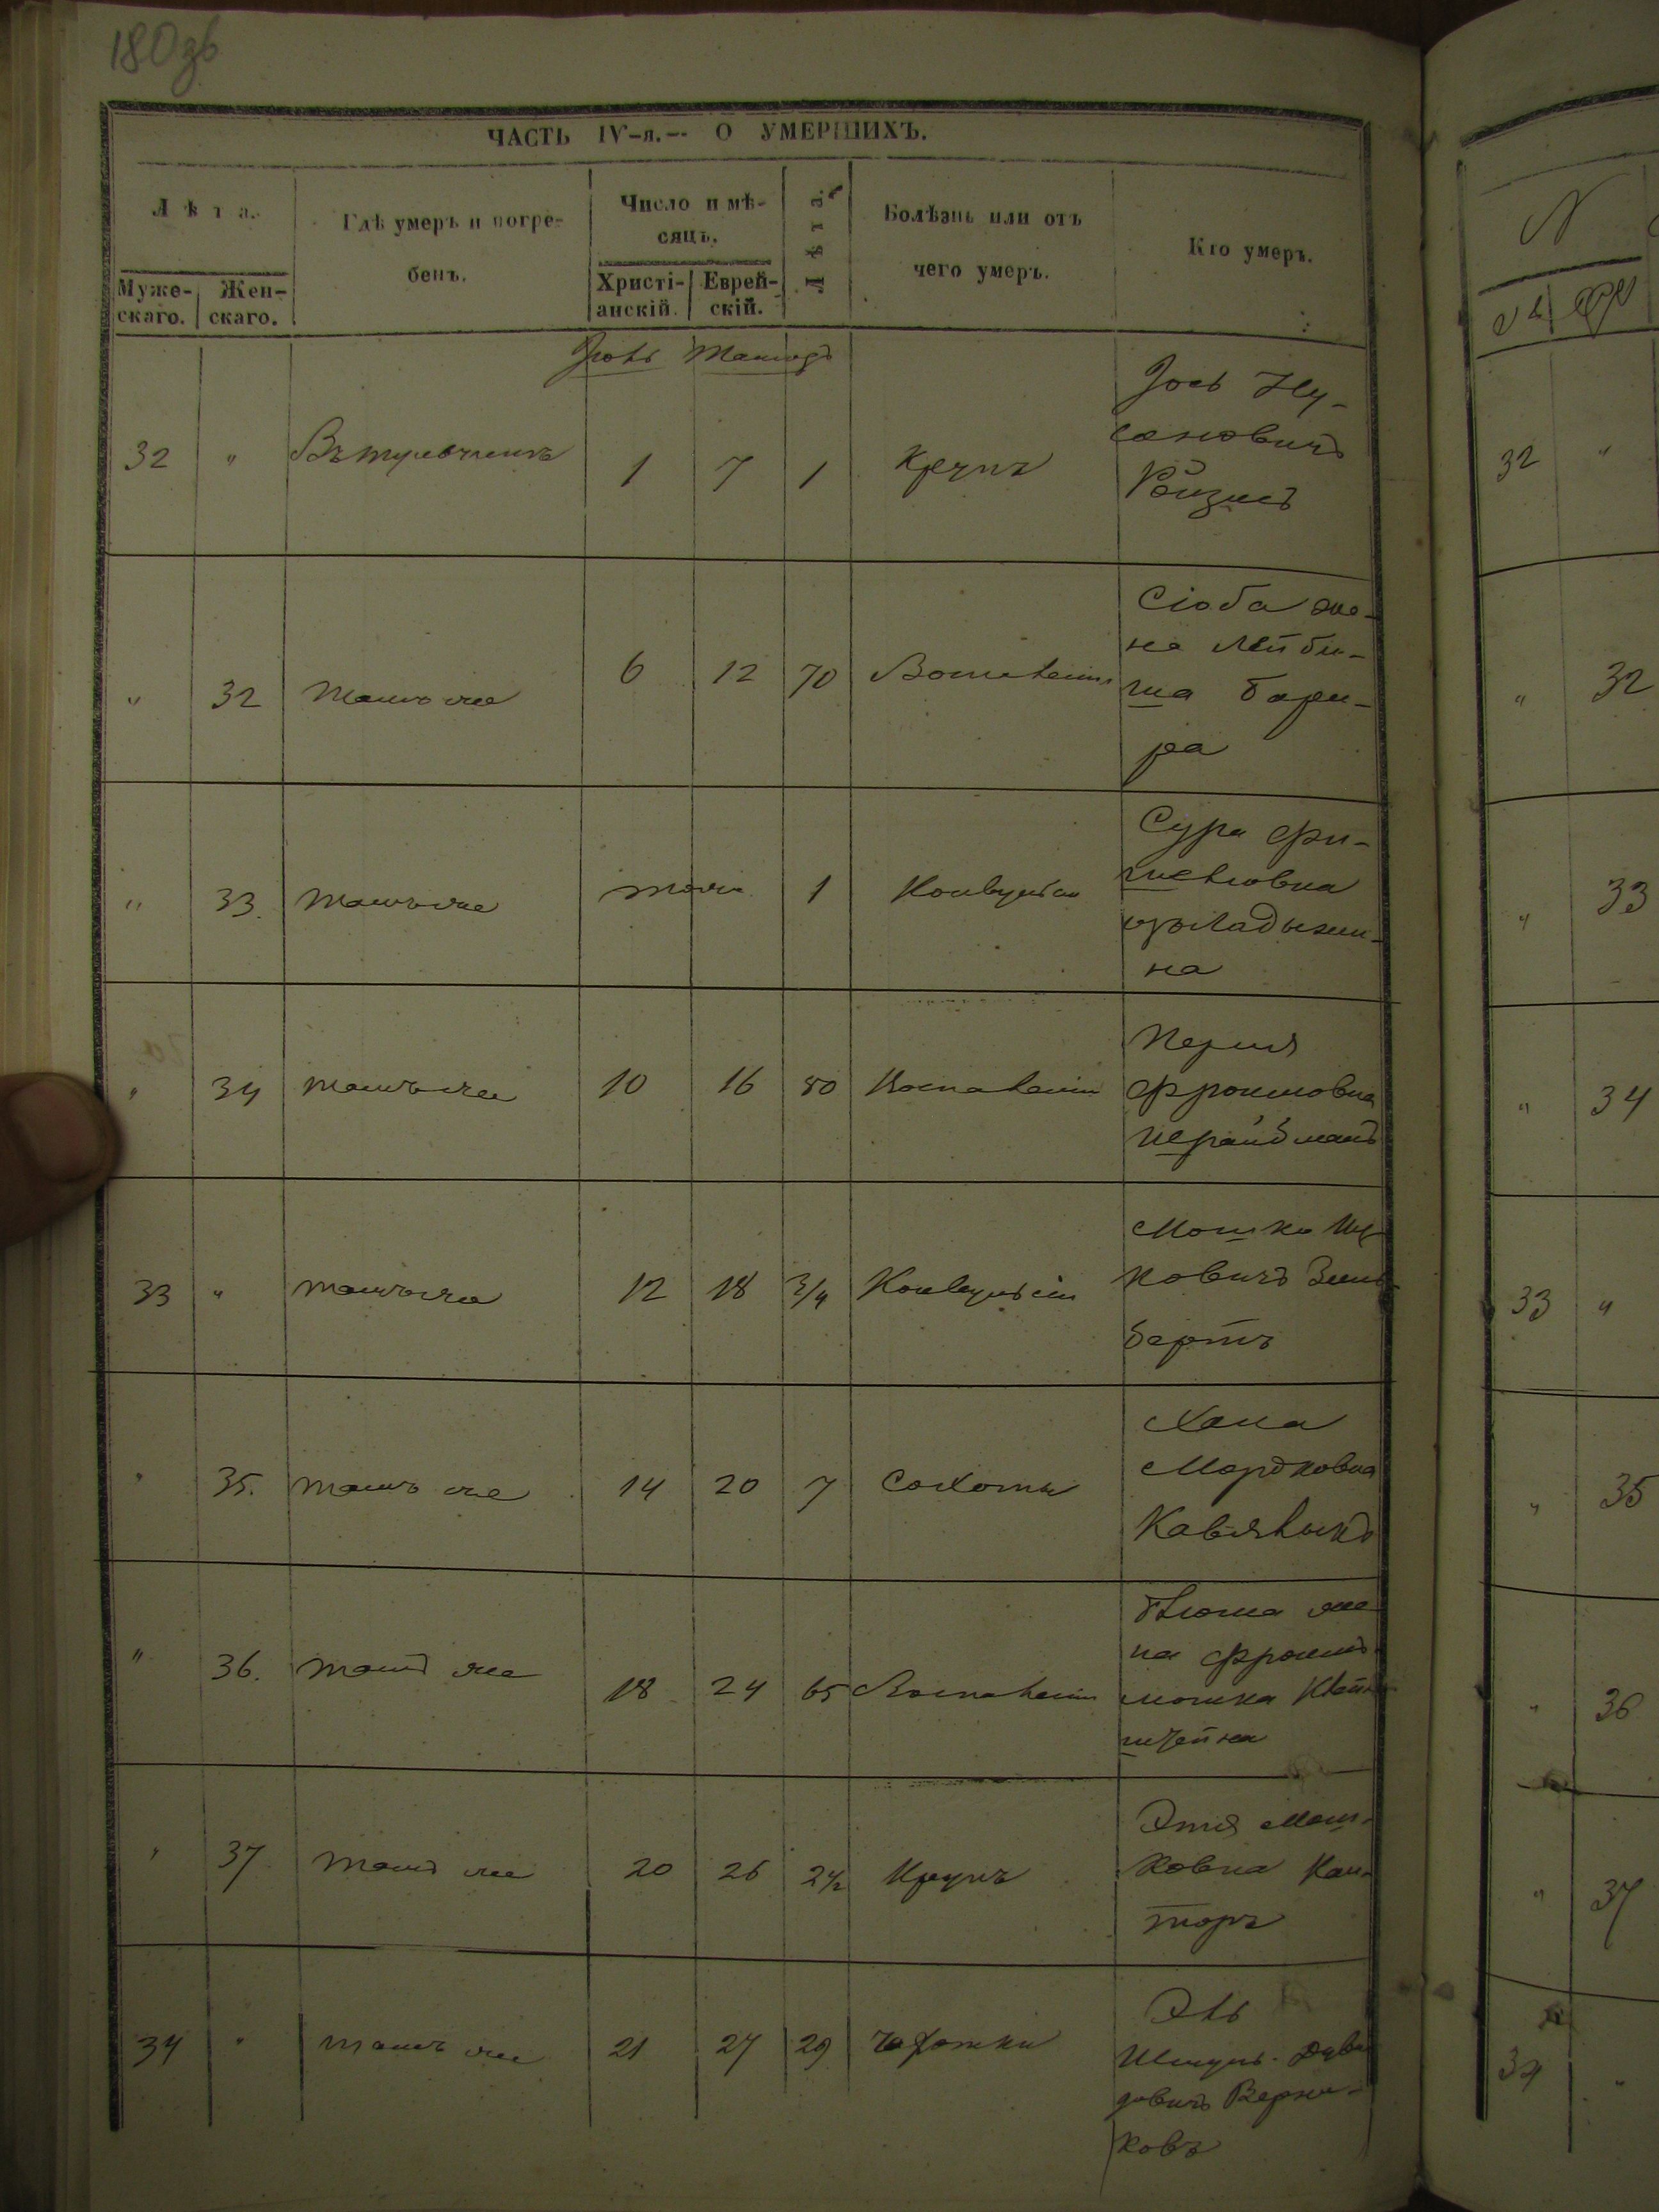 180зв
ЧАСТЬ IV-я.-- О УМЕРШИХЪ.
Лѣта.
Мужескаго.
Женскаго.
Гдѣ умеръ и погребенъ.
Число и мѣсяцъ.
Христіанскій.
Еврейскій.
Лѣта.
Болѣзнь или отъ чего умеръ.
Кто умеръ.
Іюль Тамузъ
32 " Въ Тульчинѣ 1 7 1 Крупъ
Іось Ну-
сановичъ
Ройзисъ
" 32 тамъ же 6 12 70 Воспаленіи
Сіоба же-
на Лейби-
ша
ра
" 33. тамъ же тожъ 1 Конвульсіи
Сура Фи-
шелювна
изъ Ладыжи-
на
" 34 тамъ же 10 16 80 Воспаленіи
Перля
Фроимовна
Шрайбманъ
33 " тамъ же 12 18 3/4 Конвульсіи
Мошко
ковичъ Зиль-
бертъ
" 35. тамъ же 14 20 7 Сохоты
Хана
Мордковна
" 36. тамъ же 18 24 65 Воспаленіи
Блюма же-
на Фроимъ
мошка Клейн-
штейна
" 37 тамъ же 20 26 2 1/2 Крупъ
Этя Мош-
ковна Кан-
торъ
34 " тамъ же 21 27 29 чахотки
Эль
Шмуль Дуви-
довичъ Верни-
ковъ
N
32 "
" 32
" 33
" 34
33 "
" 35
" 36
" 37
34 "